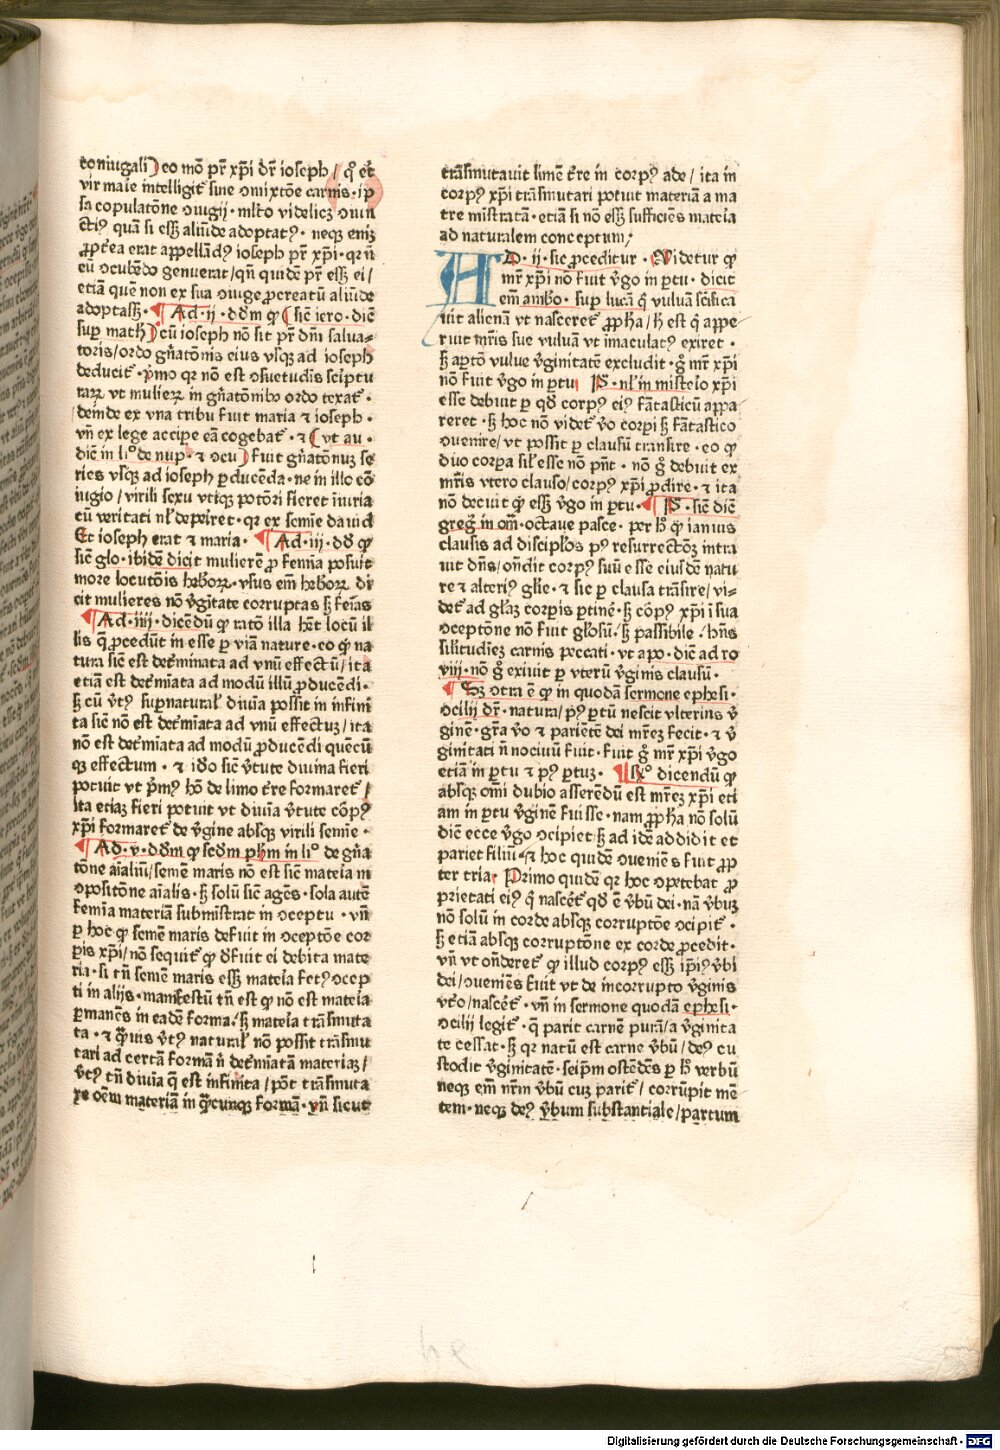 coniugali) eo mō pr̄ xp̄i dr̄ ioseph / qͦ et̄
vir marie intelligit̄ sine ↄmixtōe carnis · ip
sa copulatōne ↄiugij · ml̄to videlicꝫ ↄiun
ctiꝰ quā si esꝫ aliūde adoptatꝰ · neqꝫ eniꝫ
ꝓpt̄ea erat appellādꝰ ioseph pr̄ xp̄i · qꝛ n̄
eū ↄcubēdo genuerat / qn̄ quidē pr̄ esꝫ ei /
etiā quē non ex sua ↄiuge ꝓcreatū aliūde
adoptasꝫ · Ad · ij · dd̄m qͥ (sic̄ iero · dic̄
sup̄ math) cū ioseph nō sit pr̄ dn̄i salua⸗
toris / ordo gn̄atōnis eius vsqꝫ ad ioseph
deducit̄ · p̄mo qꝛ nō est ↄsuetudīs sc̄iptu
raꝝ vt mulieꝝ in gn̄atōnibꝰ ordo texat̄ ·
deinde ex vna tribu fuit maria ⁊ ioseph ·
vn̄ ex lege accipe eā cogebat̄ · ⁊ (vt au ·
dic̄ in liͦ de nup · ⁊ ↄcu) fuit gn̄atōnuꝫ se
ries vsqꝫ ad ioseph ꝑducēda · ne in illo cō
iugio / virili sexu vtiqꝫ potiōri fieret iniuria
cū veritati nl̄ depeiret · qꝛ ex semīe dauid
Et ioseph erat ⁊ maria · Ad · iij · dd̄ qͥ
sic̄ glo · ibidē dicit mulierē ꝓ femīa posuit
more locutōis heb̄oꝝ · vsus em̄ heb̄oꝝ di
cit mulieres nō v̄gītate corruptas sꝫ feīas
Ad · iiij · dicēdū qͥ ratō illa h̄et locū il
lis q̄ ꝓcedūt in esse ꝑ viā nature · eo qͥ na
tura sic̄ est det̄mīata ad vnū effectū / ita
etiā est det̄mīata ad modū illū ꝓducēdi ·
sꝫ cū v̄tꝰ supn̄atural̄ diuīa possit in infinī
ta sic̄ nō est det̄mīata ad vnū effectuꝫ / ita
nō est det̄mīata ad modū ꝓducēdi quēcū
qꝫ effectum · ⁊ iō sic̄ v̄tute diuina fieri
potuit vt p̄mꝰ hō de limo t̄re formaret̄ /
ita etiaꝫ fieri potuit vt diuīa v̄tute cōpꝰ
xp̄i formaret̄ de v̄gine absqꝫ virili semīe ·
Ad · v · dd̄m qͥ scd̄m phm̄ in liͦ de gn̄a
tōne aīaliū / semē maris nō est sic̄ mateīa in
ↄpositōne aīalis · sꝫ solū sic̄ agēs · sola autē
femīa materiā submīstrat in ↄceptu · vn̄
ꝑ hoc qͥ semē maris defuit in ↄceptōe cor
pis xp̄i / nō sequit̄ qͥ defuit ei debita mate
ria · si tn̄ semē maris esꝫ mateīa fetꝰ ↄcep
ti in alijs · manifestū tn̄ est qͥ nō est mateīa
ꝑmanēs in eadē forma · sꝫ mateīa trāsmuta
ta · ⁊ qͣuis v̄tꝰ natural̄ nō possit trāsmu
tari ad certā formā n̄ det̄mīatā materiaꝫ /
v̄tꝰ tn̄ diuīa q̄ est infinīta / pōt trāsmuta
re oēm materiā in qͣcunqꝫ formā · vn̄ sicut
trāsmutauit limē t̄re in corpꝰ ade / ita in
corpꝰ xp̄i trāsmutari potuit materiā a ma
tre mīstratā · etiā si nō esꝫ sufficiēs mateīa
ad naturalem conceptum ;
AD · ij · sic ꝓceditur · Videtur qͥ
mr̄ xp̄i nō fuit v̄go in ꝑtu · dicit
em̄ ambro · sup̄ lucā qͥ vuluā sc̄ifica
uit alienā vt nasceret̄ ꝓpha / h̄ est qͥ appe
ruit mr̄is sue vuluā vt īmaculatꝰ exiret ·
sꝫ aptō vulue v̄ginitatē excludit · gͦ mr̄ xp̄i
nō fuit v̄go in ꝑtu P̄ · nl̄ in misteīo xp̄i
esse debuit ꝑ qd̄ corpꝰ eiꝰ fātasticū appa
reret · sꝫ hoc nō videt̄ v̄o corpi sꝫ fātastico
ↄuenire / vt possit ꝑ clausū transire · eo qͥ
duo corpa sil̄ esse nō pn̄t · nō gͦ debuit ex
mr̄is vtero clauso / corpꝰ xp̄i ꝓdire · ⁊ ita
nō decuit qͥ esꝫ v̄go in ꝑtu · P̄ · sic̄ dic̄
greḡ in om̄ · octaue pasce · per hͦ qͥ ianuis
clausis ad discip̄los pꝰ resurrectōꝫ intra
uit dn̄s / on̄dit corpꝰ suū esse eiusdē natu
re ⁊ alteriꝰ gl̄ie · ⁊ sic ꝑ clausa trāsire / vi⸗
det̄ ad gl̄iaꝫ corpis ꝑtinē · sꝫ cōpꝰ xp̄i ī sua
ↄceptōne nō fuit gl̄iosū · sꝫ passibile · hn̄s
sil̄itudīeꝫ carnis pccati · vt apo · dic̄ ad ro
viij · nō gͦ exiuit ꝑ vterū v̄ginis clausū ·
Sꝫ ↄtra ē qͥ in quodā sermone ephesi ·
ↄcilij dr̄ · natura / pꝰ ꝑtū nescit vlterius v̄
ginē · gr̄a v̄o ⁊ parientē dei mr̄eꝫ fecit · ⁊ v̄
ginitati n̄ nociuū fuit · fuit gͦ mr̄ xp̄i v̄go
etiā in ꝑtu ⁊ pꝰ ꝑtuꝫ · Rͦ dicendū qͥ
absqꝫ oīm dubio asserēdū est mr̄eꝫ xp̄i eti
am in ꝑtu v̄ginē fuisse · nam ꝓpha nō solū
dic̄ ecce v̄go ↄcipiet · sꝫ ad idē addidit et
pariet filiū · ⁊ hoc quidē ↄueniēs fuit ꝓp
ter tria · Primo quidē qꝛ hoc ↄpetebat ꝓ
prietati eiꝰ qͥ nascēt̄ qd̄ ē v̄bū dei · nā v̄buꝫ
nō solū in corde absqꝫ corruptōe ↄcipit̄ ·
sꝫ etiā absqꝫ corruptōne ex corde ꝓcedit ·
vn̄ vt on̄deret̄ qͥ illud corpꝰ esꝫ ip̄iꝰ v̄bi
dei / ↄueniēs fuit vt de incorrupto v̄ginis
vt̄o / nascēt̄ · vn̄ in sermone quodā ephesi ·
ↄcilij legit̄ · q̄ parit carnē purā / a v̄ginita
te cessat · sꝫ qꝛ natū est carne v̄bū / deꝰ cu
stodit v̄ginitatē · seip̄m ostēdēs ꝑ hͦ verbū
neqꝫ em̄ nr̄m v̄bū cuꝫ parit̄ / corrūpit mē
tem · neqꝫ deꝰ v̄bum substantiale / partum
Digitalisierung gefördert durch die Deutsche Forschungsgemeinschaft - DFG